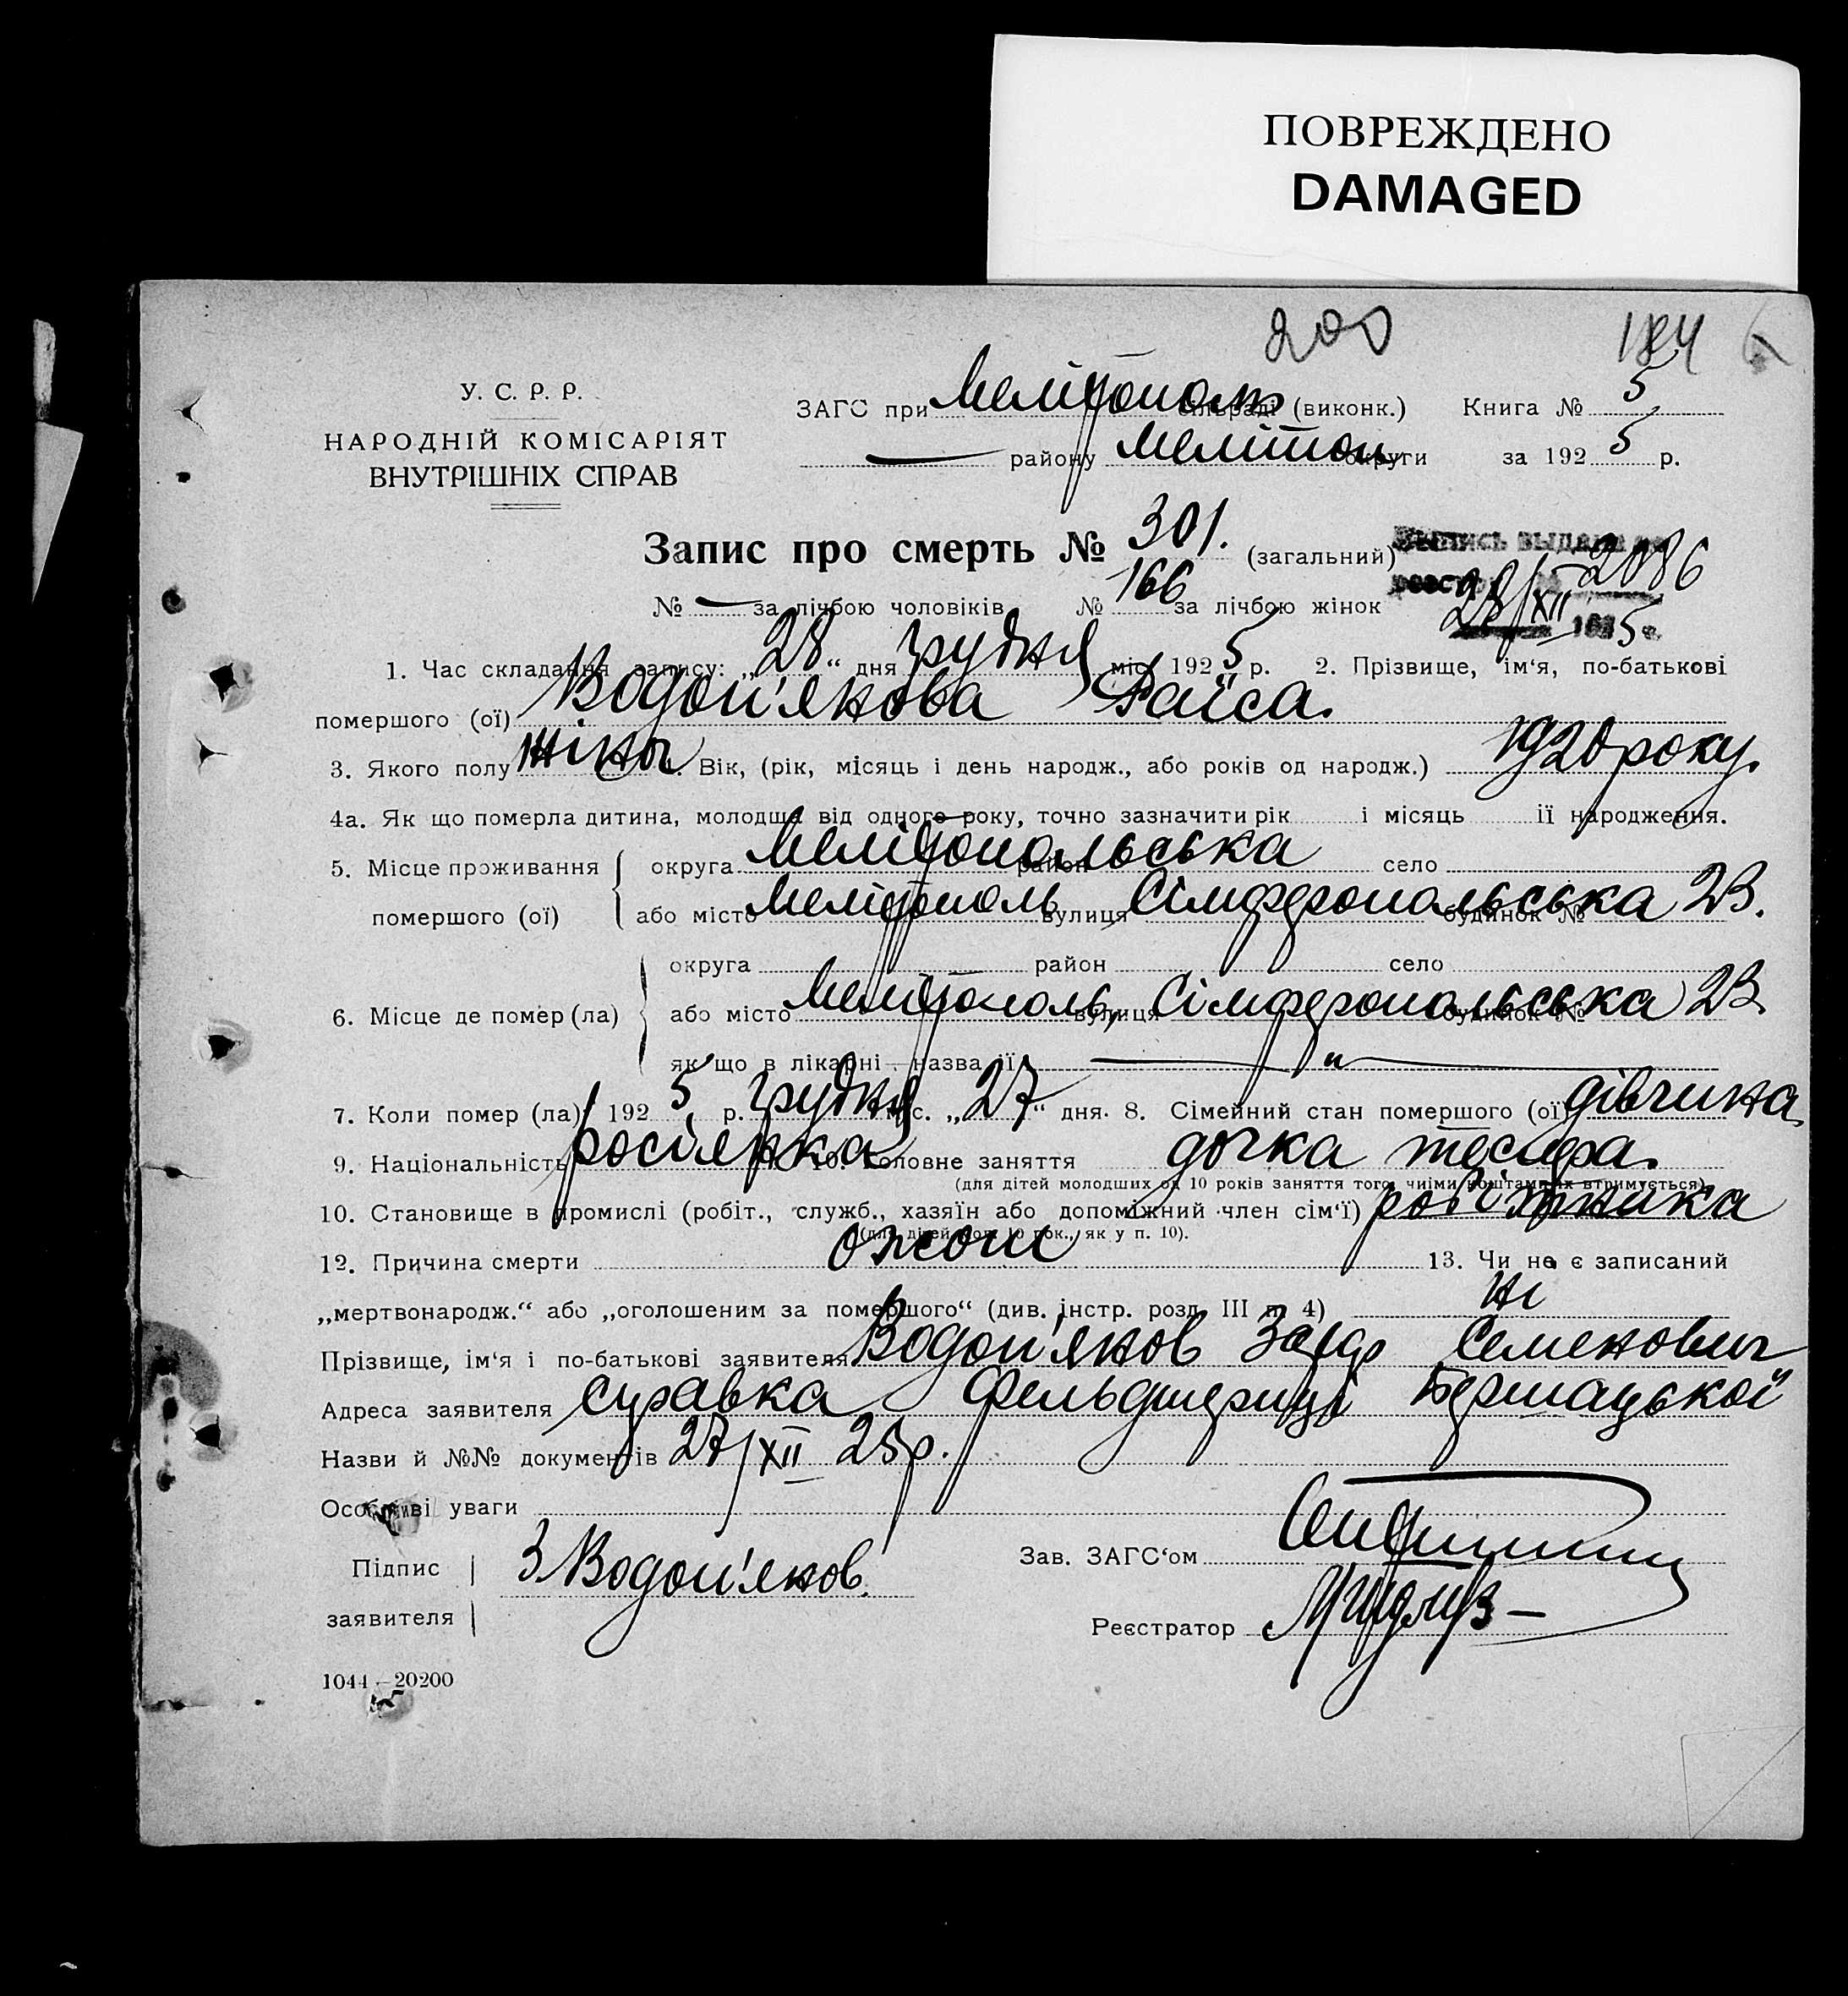 ПОВРЕЖДЕНО
DAMAGED
200 184
У. С. Р. Р.
НАРОДНІЙ КОМІСАРІЯТ
ВНУТРІШНІХ СПРАВ
ЗАГС при Мелітополь сільраді (виконк.) Книга № 5
— району Мелітоп округи за 192 5 р.
Запис про смерть № 301. (загальний)
ВЫПИСЬ ВЫДАНА
реестр 2086
№ — за лічбою чоловіків № 166 за лічбою жінок
28/XII 1925 г.
1. Час складання запису: „28“ дня грудня міс. 192 5 р. 2. Прізвище, ім‘я, по-батькові
помершого (ої) Водоп'янова Раїса.
3. Якого полу жіноч 4. Вік, (рік, місяць і день народж., або років од народж.) 1920 року.
4а. Як що померла дитина, молодша від одного року, точно зазначити рік і місяць її народження.
5. Місце проживання помершого (ої)
округа Мелітопольська район село
або місто Мелітополь вулиця Сімферопольська будинок № 23.
6. Місце де помер (ла)
округа район село
або місто Мелітополь, вулиця Сімферопольська будинок № 23
як що в лікарні назва її — „ —
7. Коли помер (ла) 192 5 р. грудня міс. „27“ дня. 8. Сімейний стан помершого (ої) дівчина
9. Національність росіянка 10. Головне заняття дочка тесляра.
(для дітей молодших од 10 років заняття того, чиїми коштами їх втримується)
10. Становище в промислі (робіт., служб., хазяїн або допоміжний член сім‘ї) робітника
(для дітей мол. 10 рок., як у п. 10).
12. Причина смерти ожог 13. Чи не є записаний
„мертвонародж.“ або „оголошеним за помершого“ (див. інстр. розд. III п. 4) ні
Прізвище, ім‘я і по-батькові заявителя Водоп'янов Захар Семенович
Адреса заявителя справка фельдшериці
Назви й №№ документів 27/XII 25р.
Особливі уваги
Підпис заявителя З Водоп'янов.
Зав. ЗАГС‘ом
Реєстратор
1044—20200